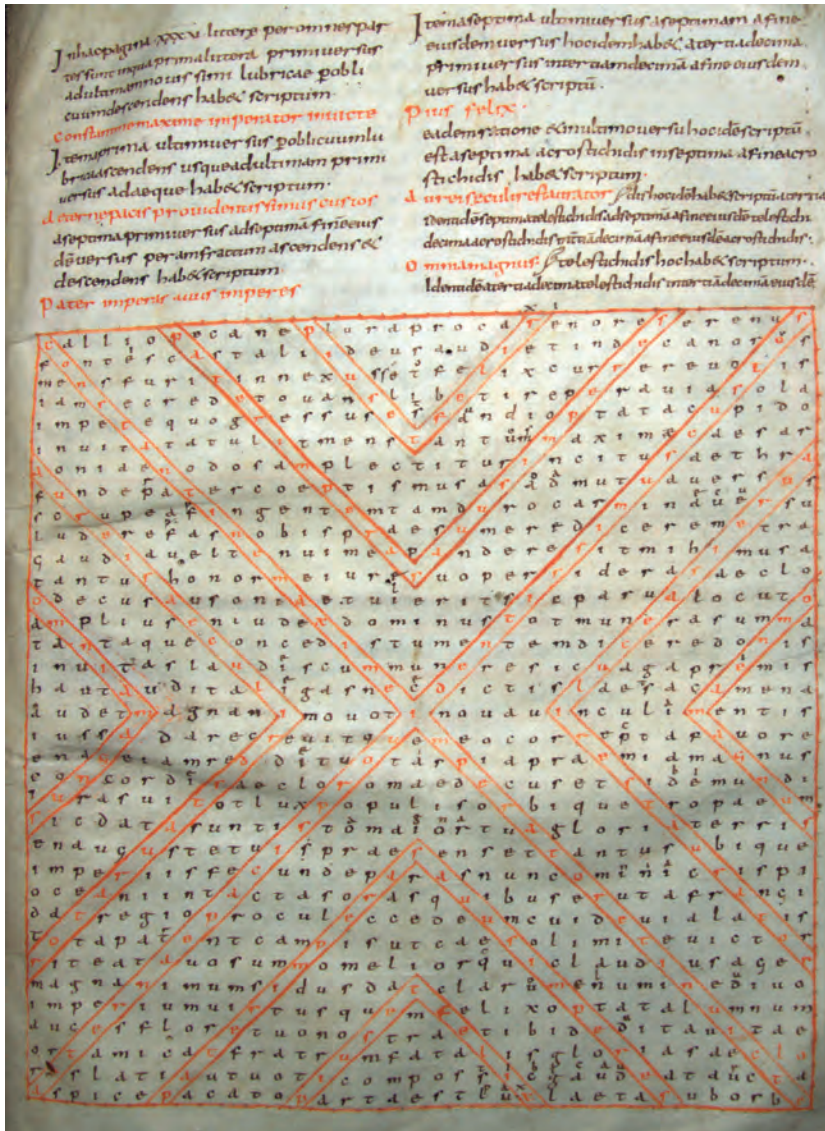 Inhacpagina xxxv litterę peromnespar
tessunt inqua primalittera primiversus
adultimannovissimi lubricae pobli
cuumdescendens habet scriptum.
Constantinemaxime imperator invicte
Itemprima ultimiversus poblicuumlu
bricaascendens usqueadultimam primi
versus adaeque habet scriptum.
Aeternepacis providentissimus custos
aseptima primiversus adseptimam afineeius
dēversus peramfractum ascendens et
descendens habet scriptum
Pater imperas avus imperes
Itemaseptima ultimiversus aseptimam afine
eiusdemversus hocidemhabet atertiadecima
primiversus intertiamdecimā afine eiusdem
versus habet scriptū.
Pius felix.
eademratione etinultimoversu hocidēscriptū
estaseptima acrostichidis inseptima afineacro
stichidis habet scriptum.
Aureiseculirestaurator dishocidēhabetscriptū atertia
Identidēseptimatelestichidisadseptimā afineeiusdētelestichi
decimaacrostichidis intertiādecimāafineeiusdēacrostichidis.
Omniamagnus. telestichidis hochabetscriptum.
Identidē atertiadecimatelestichidis intertiādecimāeiusdē
calliopecanepluraprocasenoreserenus
fontescastaliideusaudietindecanoros
mensfuritinnexussetfelixcurrereuotis
iamsecredetouanslibetireperauiasola
impetequogressusesfandioptatacupido
inuitatatulitmenstantummaximaecaesar
aoniaenodosamplectiturincitusaethra
fundepatercoeptismusasadmutuauersus
scrupeafingentemtamdurocarminauersu
luderefasuobisptaesumerediceremetra
gaudiaueltenuimeapanderesitmihimusa
tantushonormeiuresuopersiderasaeclo
odecusausoniaetuieritsicparualocuto
ampliusniudexdominustotmunerasumma
tantaqueconcedistumentemdiceredonis
inuitaslaudiscummuneresicuagapremis
hautauditaligasnecdictislaesacamena
audetmagnanimouotinouauinculimentis
iussadarecreuitquemeocorreptapauore
enaqeiamreddituotarpiapraemiamagnus
concordiraecloromaedecusetsidemundi
iurasuitotluxpopulisorbiquetropaeum
sicdatasuntistomaiortuagloriaterris
enaugustetuispraesensettantusubique
imperiisfecundeparasnunccominicrispi
oceaniintactasorasquibuserutafranci
datregioproculeccedeumcuideuialatis
totapatentcampisutcaesolimiteuictor
siteatauosummomeliorquiclaudiusages
magnanimumsidusdatclarumenumineduo
imperiumuirtusquemfelixoptatalumnum
aucesfloretuonostraetibideditauitae
ortamicatfratrumfatalisgloriasaeclo
rslatiautuoticompossicgaudeataucta
aspicepacatouartaesteuxlaetasuborbs